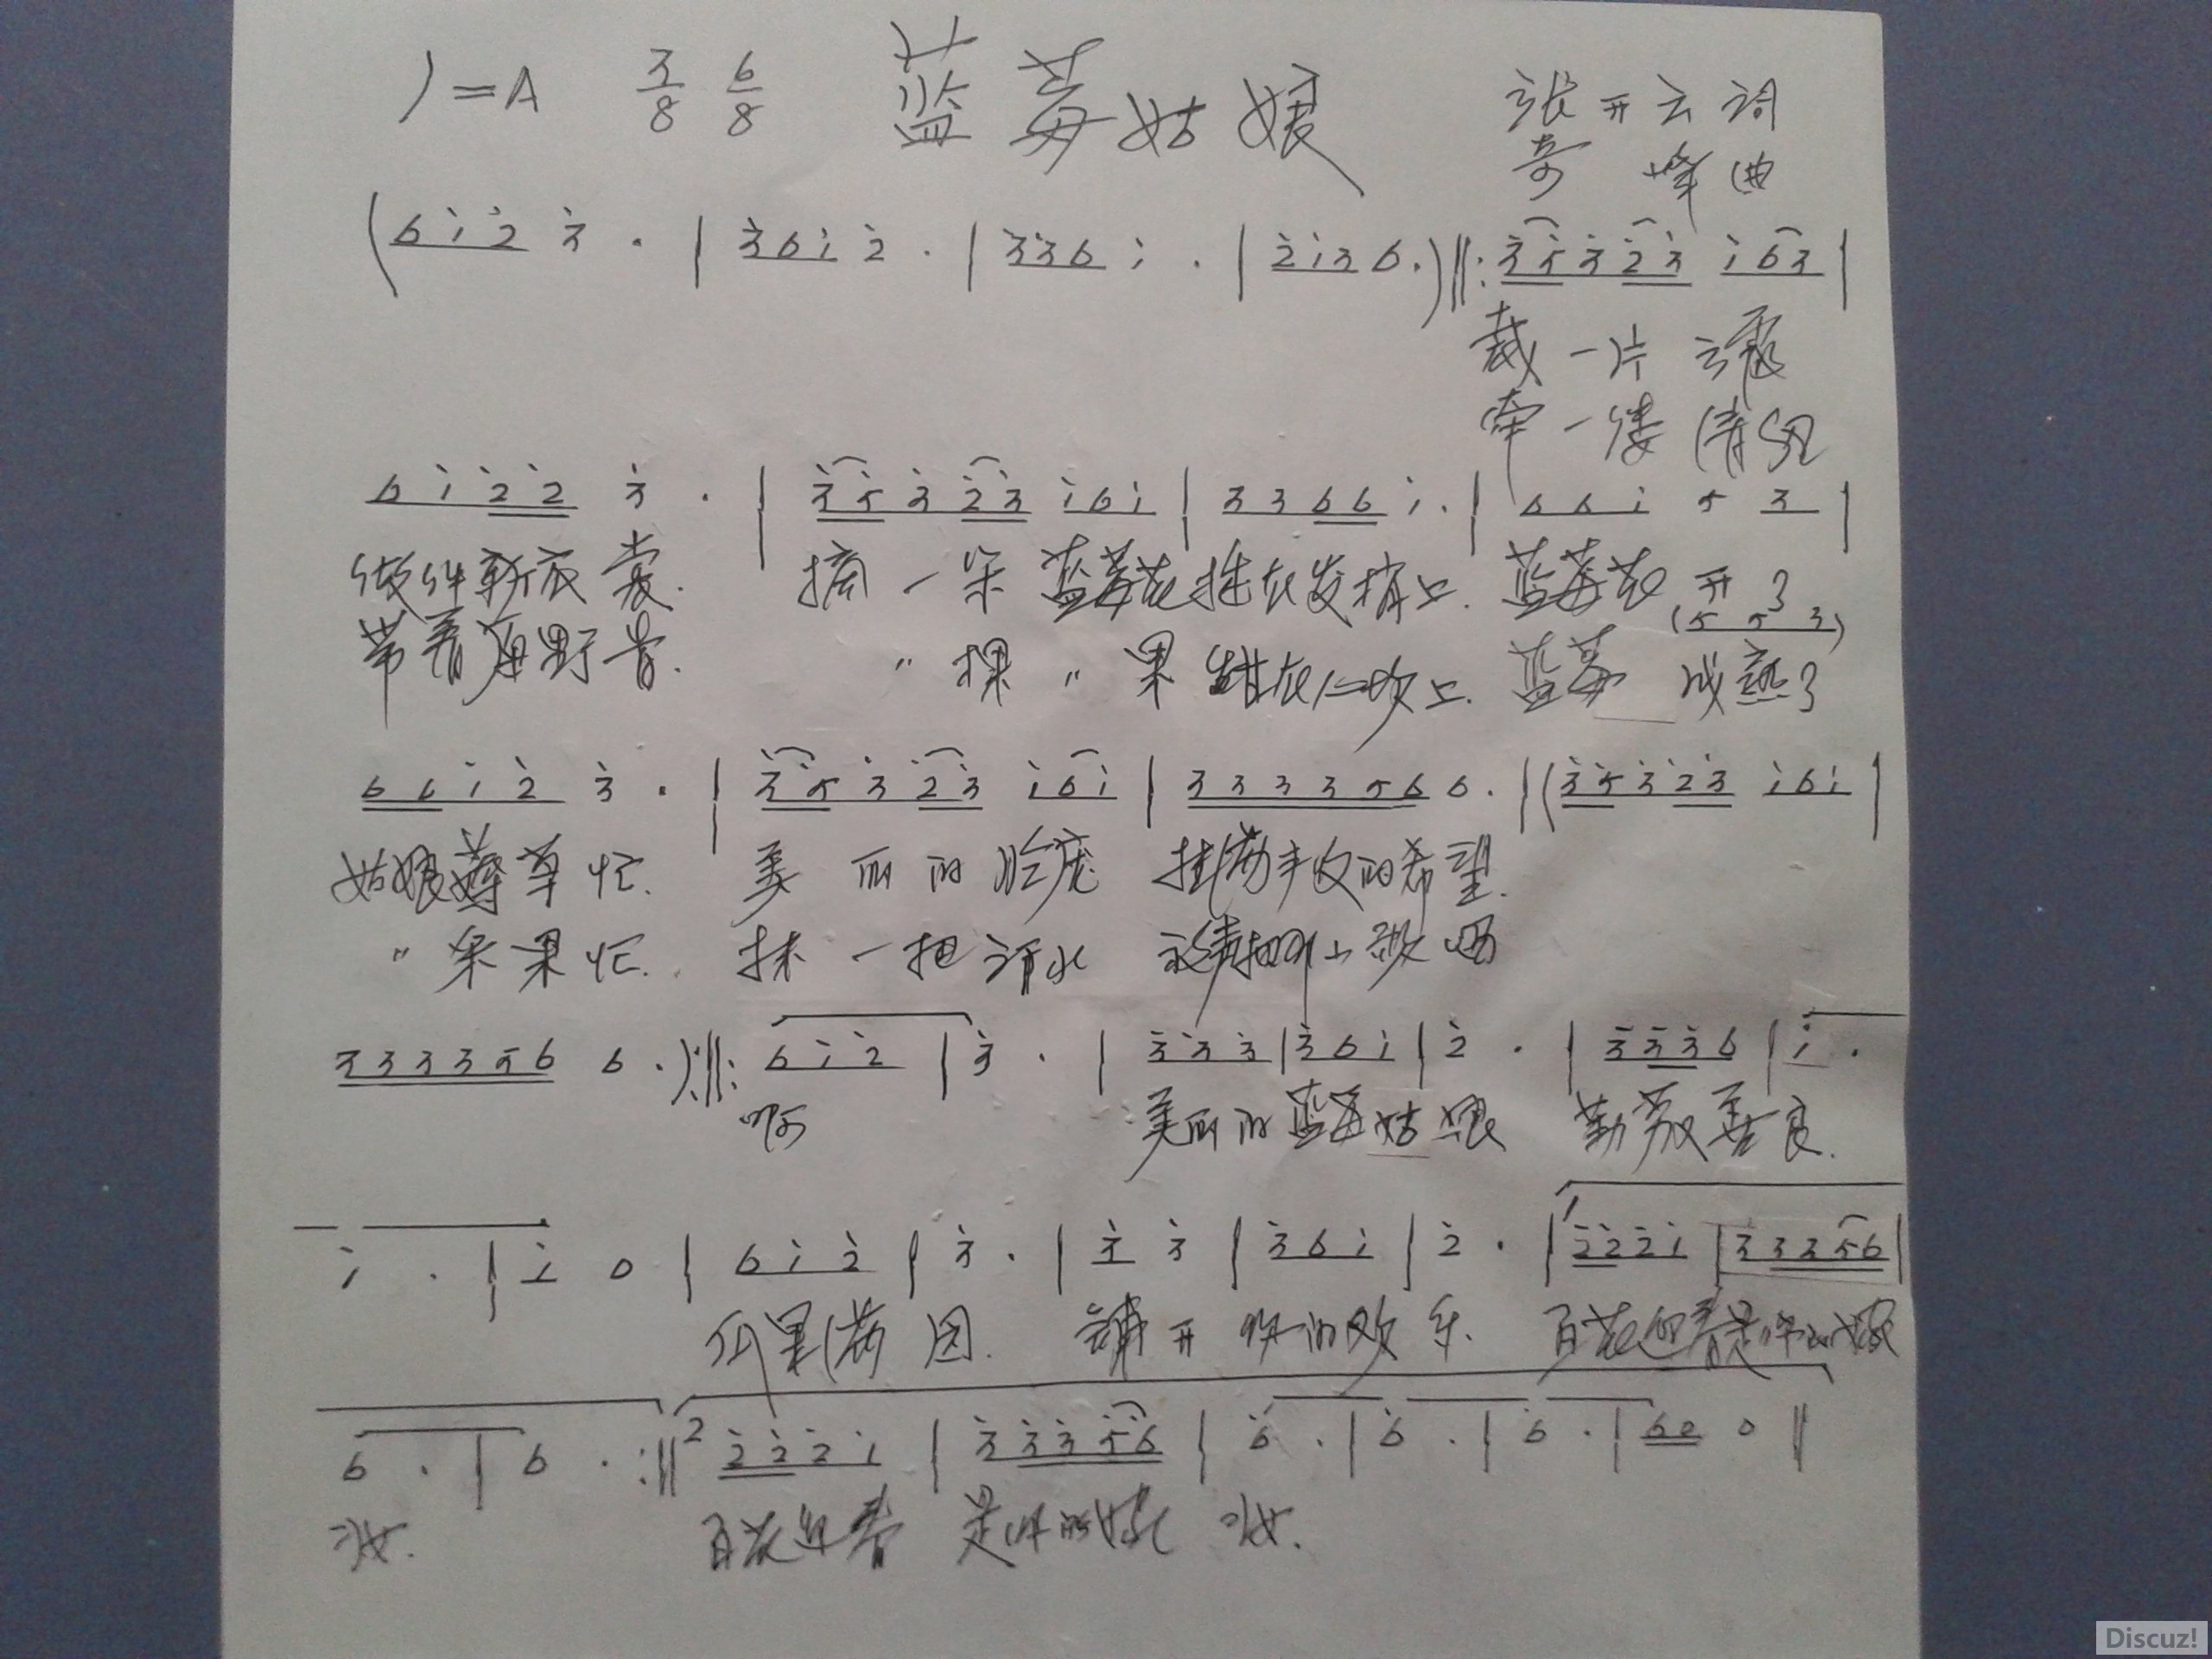 1=A 3/8 6/8 蓝莓姑娘 张开云 词
奇峰 曲
(6 i 2̇ 3̇ . | 3̇ 6 i 2̇ . | 3̇ 3̇ 6 i . | 2̇ i 3 6 . ) ‖: 3̇ 5̇ 3̇ 2̇ 3̇ i 6 3 |
裁一片云霞
牵一缕情丝
6 i 2̇ 2̇ 3̇ . | 3̇ 5̇ 3̇ 2̇ 3̇ i 6 i | 3 3 6 6 i . | 6 6 i 5 3 |
做件新衣裳. 摘一朵蓝莓花挂在发梢上. 蓝莓花开了
(5 5 3)
带着 野 . " 棵 " 果 甜在心坎上. 蓝莓成熟了
6 6 i 2̇ 3̇ . | 3̇ 5̇ 3̇ 2̇ 3̇ i 6 i | 3 3 3 3 5 6 6 . | (3̇ 5̇ 3̇ 2̇ 3̇ i 6 i |
姑娘薅草忙. 美丽的脸庞 挂满丰收的希望.
" 采果忙. 抹一把汗水
3 3 3 3 5 6 6 . ) :‖: 6 i 2̇ | 3̇ . | 3̇ 3̇ 3̇ | 3̇ 6 i | 2̇ . | 3̇ 3̇ 3̇ 6 | i .
啊 美丽的蓝莓姑娘 勤劳善良.
i . | i 0 | 6 i 2̇ | 3̇ . | 3̇ 3̇ | 3̇ 6 i | 2̇ . | 1 2̇ 2̇ 2̇ i | 3 3 3 5 6 |
瓜果满园. 铺开你的欢乐. 百花迎春是你的嫁
6 . | 6 . :‖ 2 2̇ 2̇ 2̇ i | 3̇ 3̇ 3̇ 5̇ 6̇ | 6̇ . | 6̇ . | 6̇ . | 6 0 0 ‖
妆. 百花迎春 是你的嫁 妆.